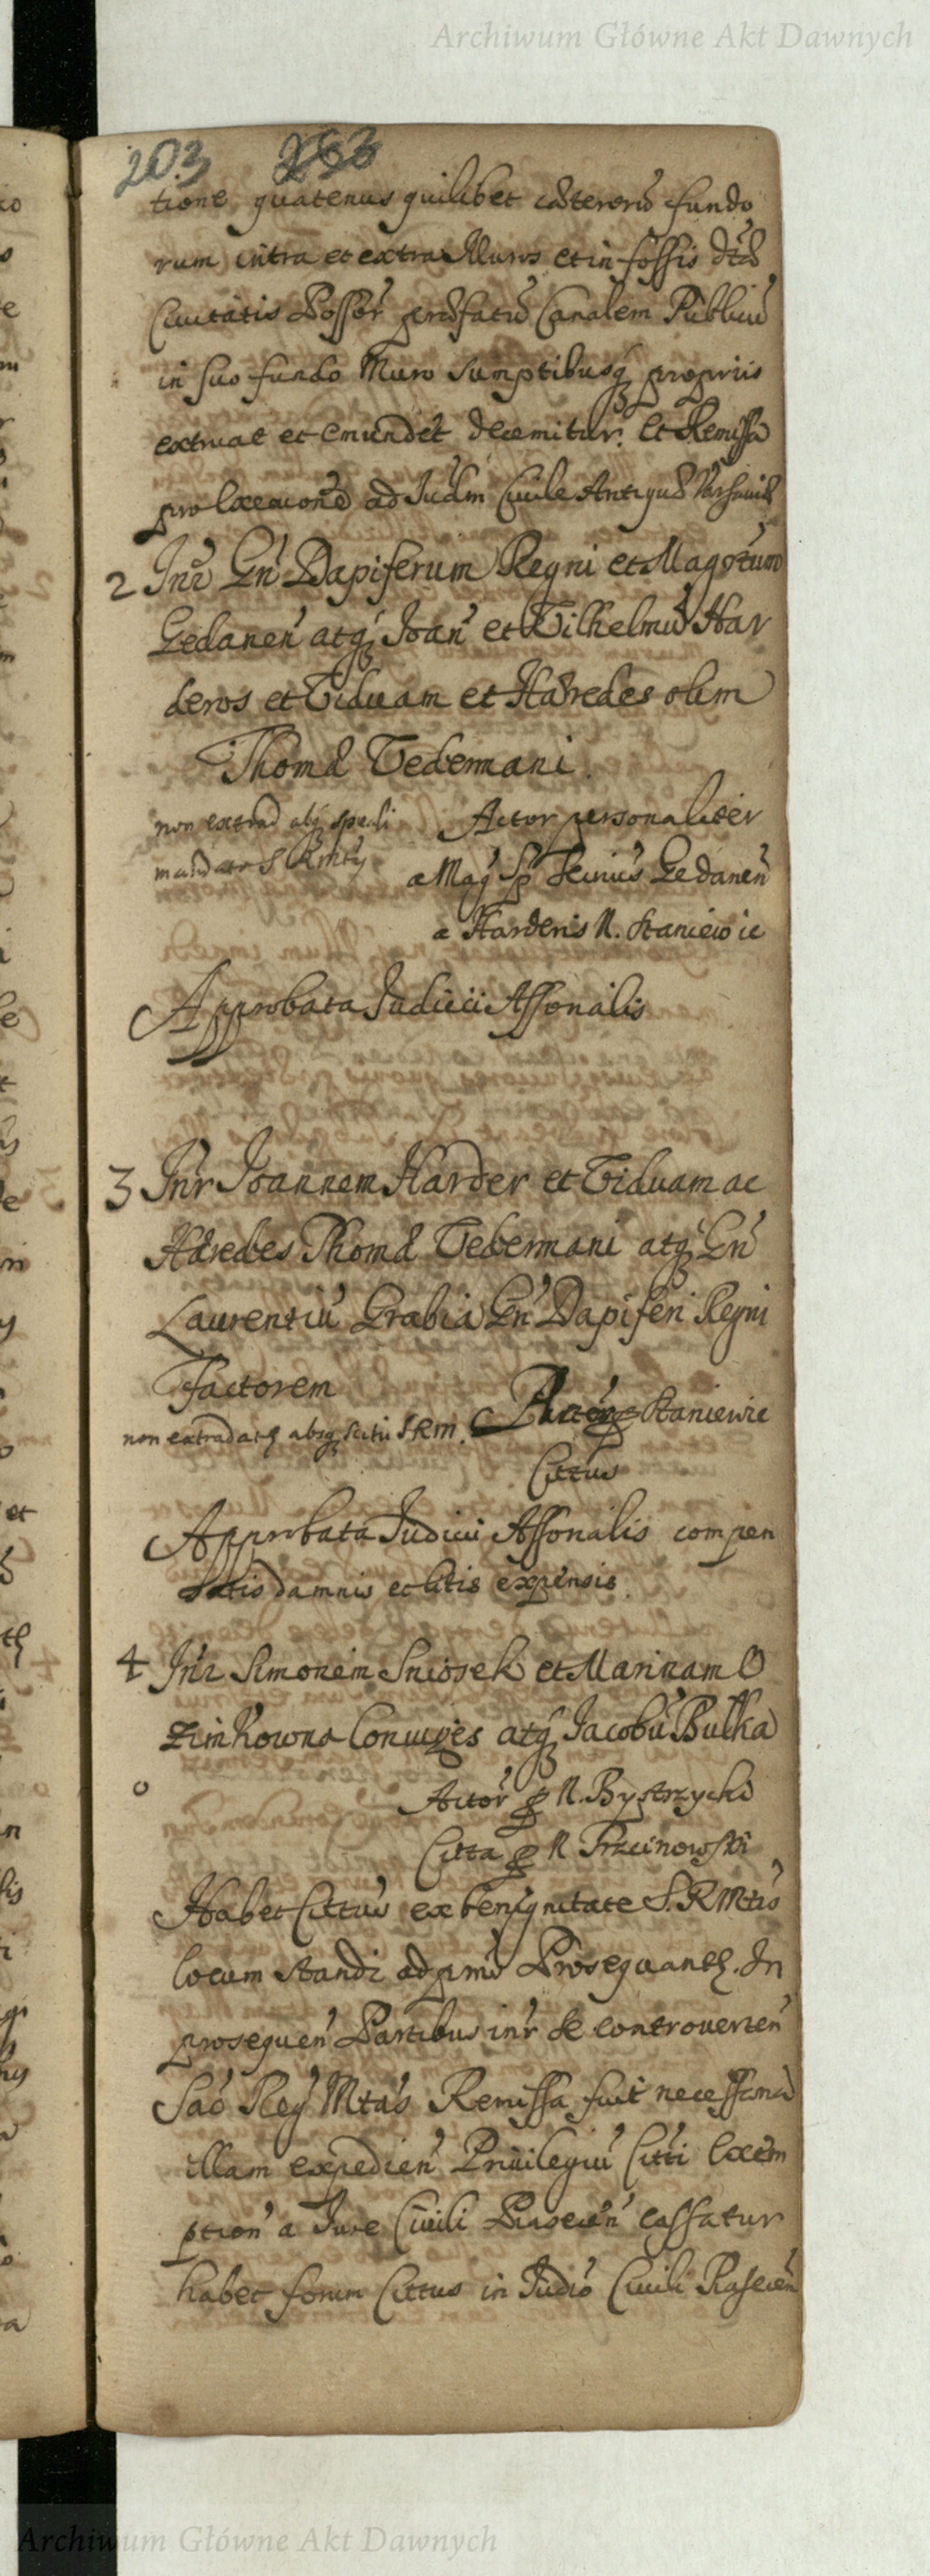 Archiwum Główne Akt Dawnych
203
tione quatenus quilibet cæterorũ fundo
rum intra et extra Muros et in fossis dtæ
Ciuitatis Possor præfatũ Canalem Publicũ
in suo fundo Muro Sumptibusq propriis
extruat et emundet decernitur. Et Remissa
pro Execuone ad Iudm Ciuile Antiquæ Varsauiæ
2 Inr Gn Dapiferum Regni et Magratum
Gedanen atq Ioan et Vilhelmũ Har
deros et Viduam et Hæredes olim
Thomæ Tedermani
non extrad absq spcali
mandato S R Mttis
Actor personaliter
a Mag Sp Gedanen
a Harderis N. Staniewic
Approbata Iudicii Assonalis
3 Inr Ioannem Harder et Viduam ac
Hæredes Thomæ Tedermani atq Gn
Laurentiũ Grabia Gn Dapiferi Regni
Factorem
non extradatq absq scitu S R m.
Staniewic
Cittus
Approbata Iudicii Assonalis compen
satis damnis et litis expensis
4 Inr Simonem Sniosek et Marinam O
zimkowna Coniuges atq Iacobũ Bulka
Actor p N. Bystrzycki
Citta p N Trzcinowski
Habet Cittus ex benignitate S. R Mttis
locum standi ad pmũ Prosequantq. In
prosequen Partibus inr se controuerten
Sac Reg Mtas Remissa fuit necessaria
illam expedien Priuilegiũ Citti Exem
ption a Iure Ciuili Piasecen cassatur
habet forum Cittus in Iudio Ciuili Piasecen
Archiwum Główne Akt Dawnych